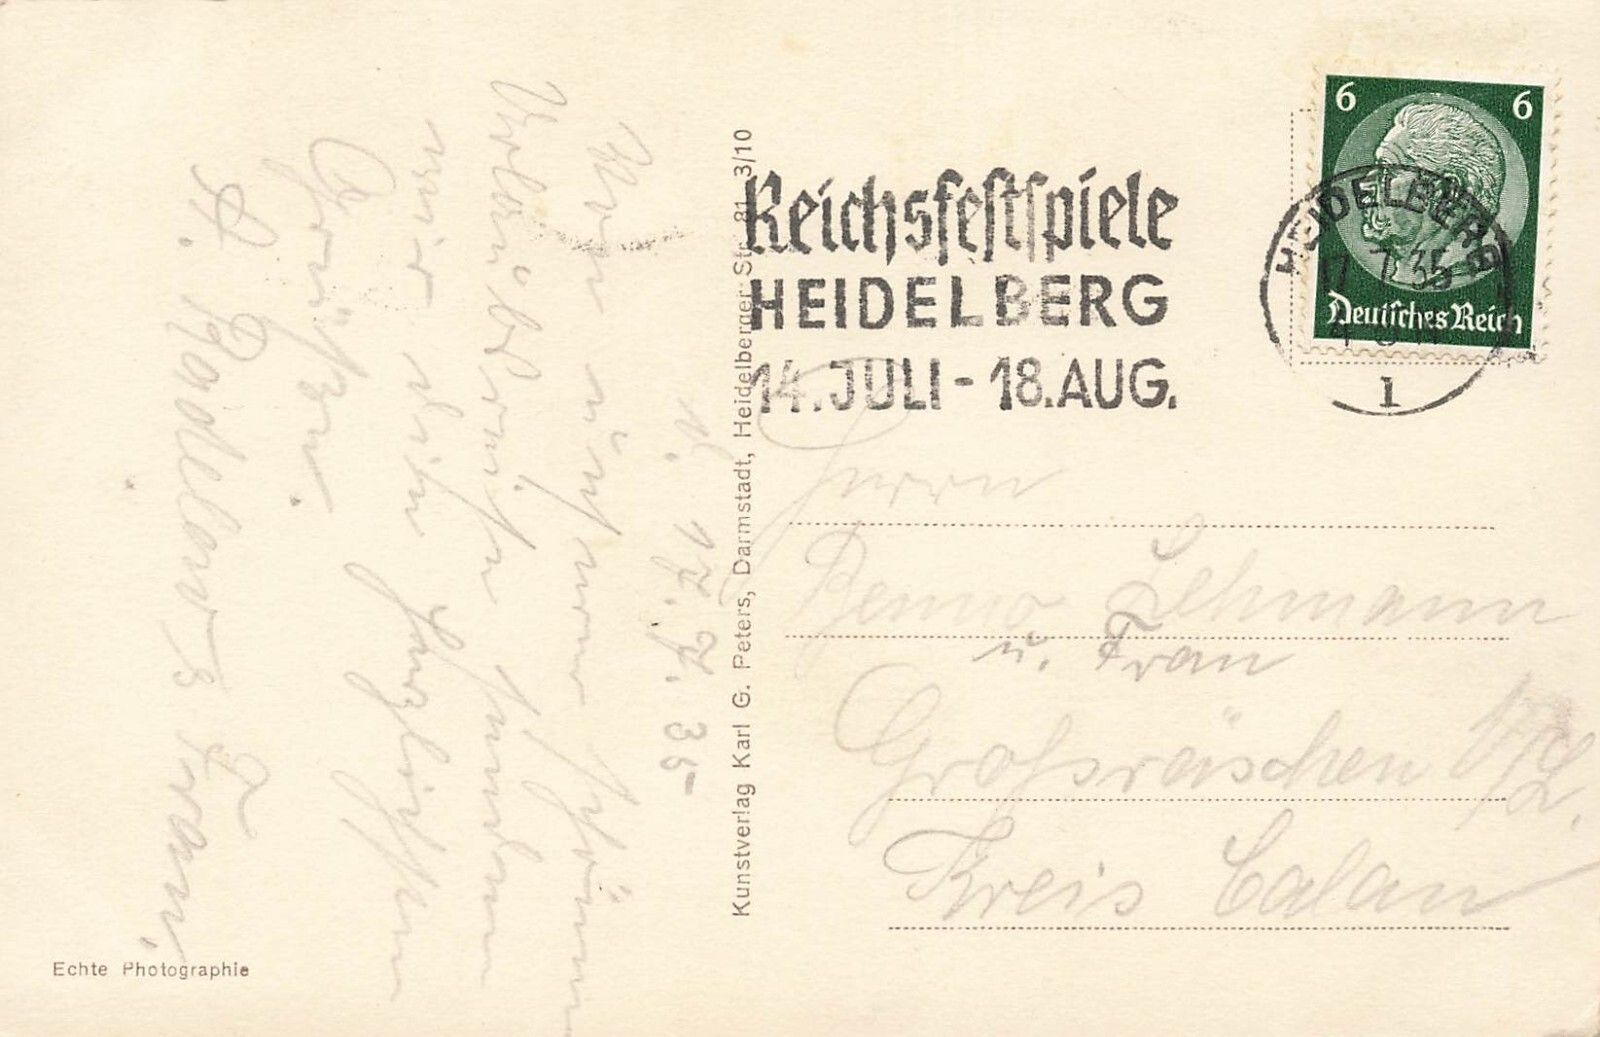 Reichsfestspiele
HEIDELBERG
14. JULI - 18. AUG.
HEIDELBERG
17.7.35
1
6 6
Deutsches Reich
Kunstverlag Karl G. Peters, Darmstadt, Heidelberger Str. 81 3/10
17. 7. 35
Von unserer schönen
Urlaubsreise senden
wir die herzlichsten
Grüßen.
A. Frau
Herrn
Benno Lehmann
u. Frau
Großräschen N/L.
Kreis Calau
Echte Photographie